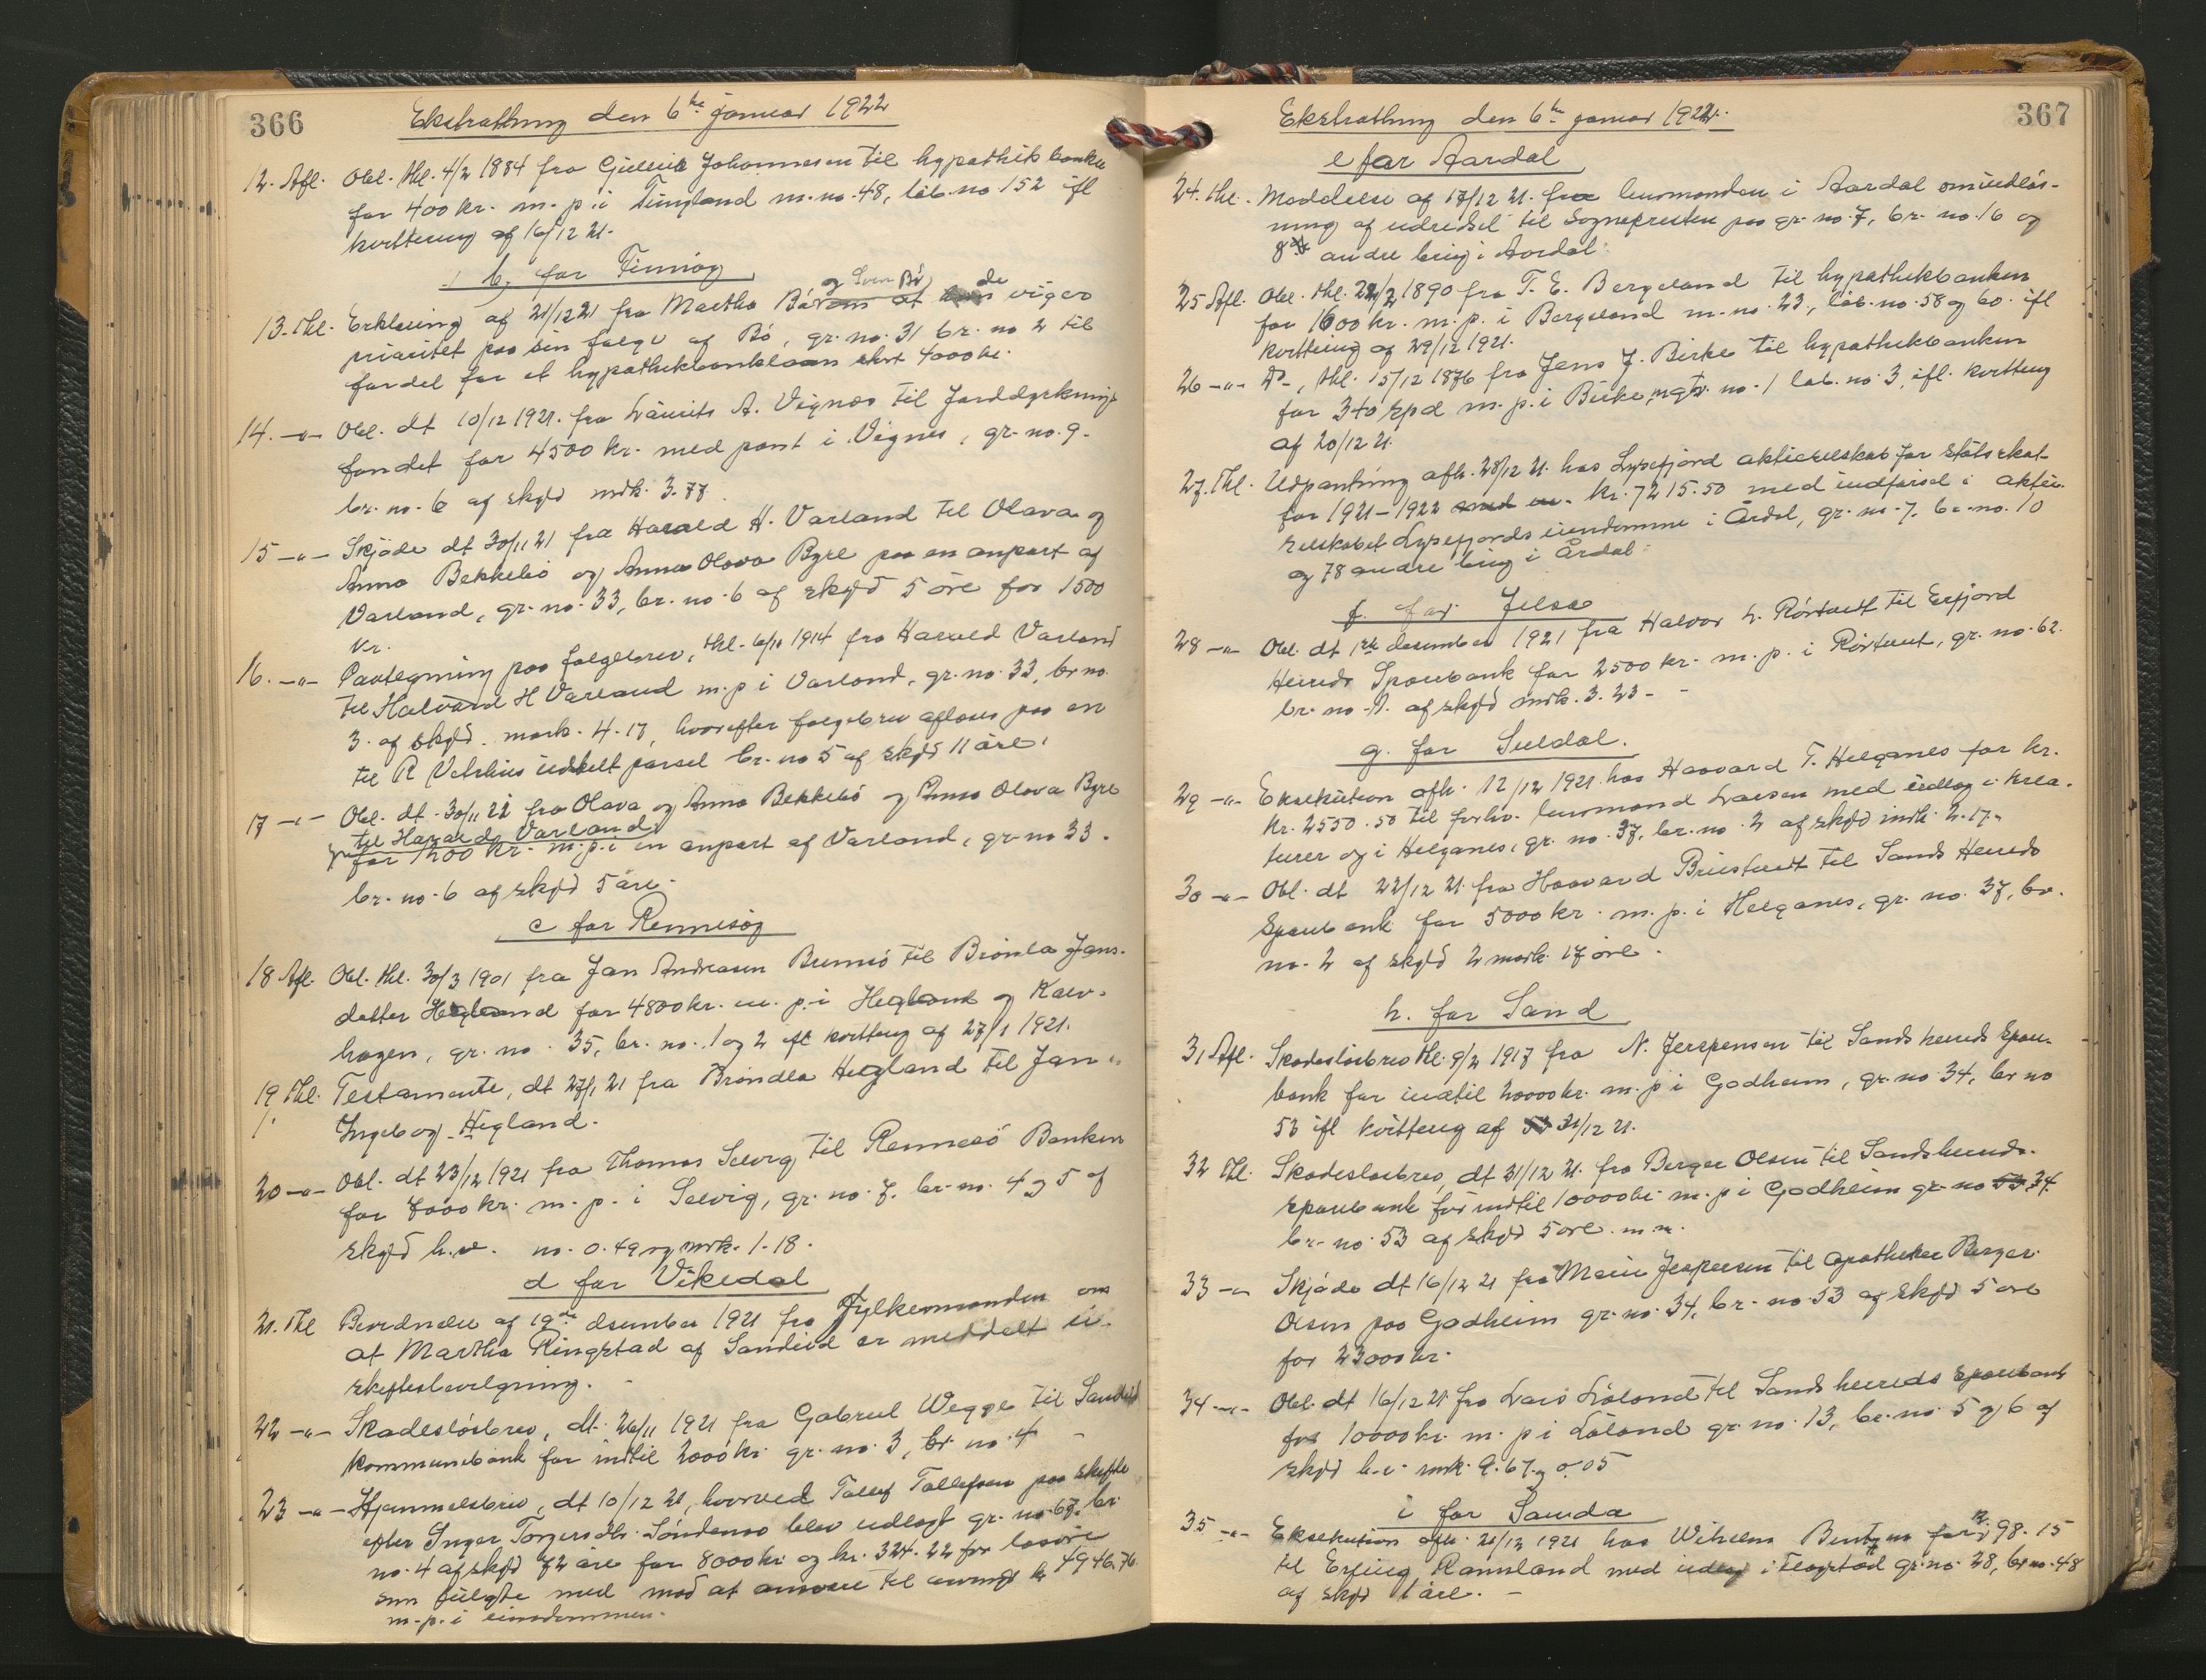 366
Ekstrathing den 6te januar 1922
12. Afl. Obl. thl. 4/2 1884 fra Johannesen til hypothekbanken
for 400 kr. m. p. i Tungland m. no. 48,løb. no 152 ifl
kvittering af 16/12 21.
b, for Finnøy
13. Thl. Erklæring af 21/12 21 fra Martha Bø og Sven Bø om at de viger
prioritet paa sin folge af Bø, gr. no. 31 br. no 2 til
fordel for et hypothekbanklaan stort 4000 kr.
14. -"- Obl. dt 10/12 1921. fra Laurits A. Vignes til Jorddyrknings
fondet for 4500 kr. med pant i Vignes, gr. no. 9.
br. no. 6 af skyld mrk. 3.77.
15 -"- Skjøde dt 30/11 21 fra Harald H. Varland til Olava og
Anna Bekkebø og Anna Olava Byre paa en anpart af
Varland, gr. no. 33, br. no. 6 af skyld 5 øre for 1500
kr.
16. -"- Paategning paa folgebrev, thl. 6/10 1914 fra Harald Varland
til Halvard H Varland m. p i Varland, gr. no. 33, br no.
3. af skyld. mark. 4.17, hvorefter folgebrev afløses paa en
til R udskilt parsel br. no 5 af skyld 11 øre.
17 -"- Obl. dt. 30/11 21 fra Olava og Anna Bekkebø og Anna Olava Byre
til Harald Varland
for 1200 kr. m. p. i en anpart af Varland, gr. no 33.
br. no. 6 af skyld 5 øre.
c for Rennesøy
18 Afl. Obl. thl. 30/3 1901 fra Jan Andreasen Bumsø til Jans-
datter Hegland for 4800 kr. m. p. i Hegland og Kalv-
hagen, gr. no. 35, br. no. 1 og 2 ifl kvittering af 27/1 1921.
19 Thl. Testamente, dt 27/1 21 fra Hegland til Jan
Ingeborg Hegland.
20 -"- Obl. dt 23/12 1921 fra Thomas Selvig til Rennesø Banken
for 7000 kr. m. p. i Selvig, gr. no. 7. br. no. 4 og 5 af
skyld h.v. no. 0.49 og mrk. 1.18.
d for Vikedal
21. Thl af 19de desember 1921 fra Fylkesmanden om
at Martha Ringstad af Sandeid er meddelt u-
skiftesbevilgning. -
22 -"- Skadesløsbrev, dt. 26/11 1921 fra Gabriel Wegge til Sandeid
kommunebank for indtil 2000 kr. gr. no. 3, br. no. 4 -
23 -"- Hjemmelsbrev, dt 10/12 21, hvorved Tollef Tollefsen paa skifte
efter Inger Torgersdtr. Søndenaa blev udlagt gr. no. 67. br.
no. 4 af skyld 72 øre for 8000 kr og kr. 324.22 for løsøre
som fulgte med mod at ansvare til kr 4946.76
m. p. i eiendommen.
367
Ekstrathing den 6te januar 1922.
e for Aardal
24. Thl. Meddelelse af 17/12 21. fra lensmanden i Aardal om indløs-
ning af udredsel til Sognepresten paa gr. no. 7, br. no. 16 og
8 andre brug i Aardal.
25 Afl. Obl. thl. 22/2 1890 fra T. E. Bergeland til hypothekbanken
for 1600 kr. m. p. i Bergeland m. no. 23, løb. no. 58 og 60. ifl
kvittering af 29/12 1921.
26 -"- Do -, thl. 15/12 1876 fra Jens J. Birke til hypothekbanken
for 340 spd m. p. i Birke, m. no. 1 løb. no. 3, ifl. kvittering
af 20/12 21.
27. Thl. Udpantning afh. 28/12 21. hos Lysefjord aktieselskab for statsskat
for 1921-1922 kr. 7215.50 med indførsel i aktie-
selskabet Lysefjords eiendomme i Årdal, gr. no. 7. br. no. 10
og 78 andre brug i Årdal.
f. for Jelse
28 -"- Obl. dt 1ste desember 1921 fra Halvor L. Rørtveit til Erfjord
Herreds Sparebank for 2500 kr. m. p. i Rørtveit, gr. no. 62.
br. no. 1. af skyld mrk. 3.23 -
g. for Suldal.
29 -"- Eksekution afh. 12/12 1921 hos Haavard T. Helganes for kr.
kr. 2550.50 til forhv. lensmand Larsen med udlæg i krea-
turer og i Helganes, gr. no. 37, br. no. 2 af skyld mrk. 2.17.
30 -"- Obl. dt 22/12 21. fra Haavard til Sands Herreds
Sparebank for 5000 kr. m. p. i Helganes, gr. no. 37, br.
no. 2 af skyld 2 mark 17 øre.
h. for Sand
31 Afl. Skadesløsbrev thl. 9/2 1917 fra N. Jespersen til Sands herreds Spare-
bank for indtil 20000 kr. m. p i Godheim, gr. no. 34, br no
53 ifl kvittering af 31/12 21.
32 Thl. Skadesløsbrev, dt 31/12 21. fra Berger Olsen til Sandsherreds-
sparebank for indtil 10000 kr. m. p i Godheim gr. no 53 34.
br. no. 53 af skyld 5 øre. m. m.
33 -"- Skjøde dt 16/12 21 fra Marie Jespersen til apotheker Berger
Olsen paa Godheim gr. no. 34, br. no. 53 af skyld 5 øre
for 23000 kr.
34 -"- Obl. dt 16/12 21 fra Lars Løland til Sands herreds Sparebank
for 10000 kr. m. p i Løland gr. no. 13, br. no. 5 og 6 af
skyld h.v. mrk. 9.67 og 0.05
i for Sauda
35 -"- Eksekution afh. 21/12 1921 hos Wilhelm for kr. 98.15
til Erling Ramsland med udlæg i gr. no. 28, br no. 48
af skyld 1 øre. -